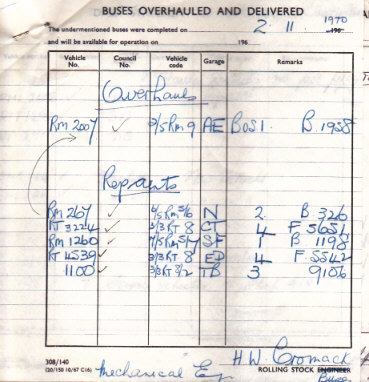 BUSES OVERHAULED AND DELIVERED
The undermentioned buses were completed on 2. 11. 1970 196
and will be available for operation on 196
Vehicle No. Council No. Vehicle code Garage Remarks
Overhauls
RM 2007 ✓ 9/5 RM 9 AE BOS1. B 1958
Repaints
RM 267 ✓ 6/5 RM 5/6 N 2. B 326
RT 3224 ✓ 3/3 RT 8 CT 4 F 5651
RM 1260 ✓ 7/5 RM 5/7 SF 1 B 1198
RT 4539 ✓ 3/3 RT 8 ED 4 F 5542
1100 ✓ 3/3 RT 3/2 TB 3 9106
308/140
(20/150 10/67 C16) Mechanical Eng
H.W. Cromack
ROLLING STOCK ENGINEER
Buses